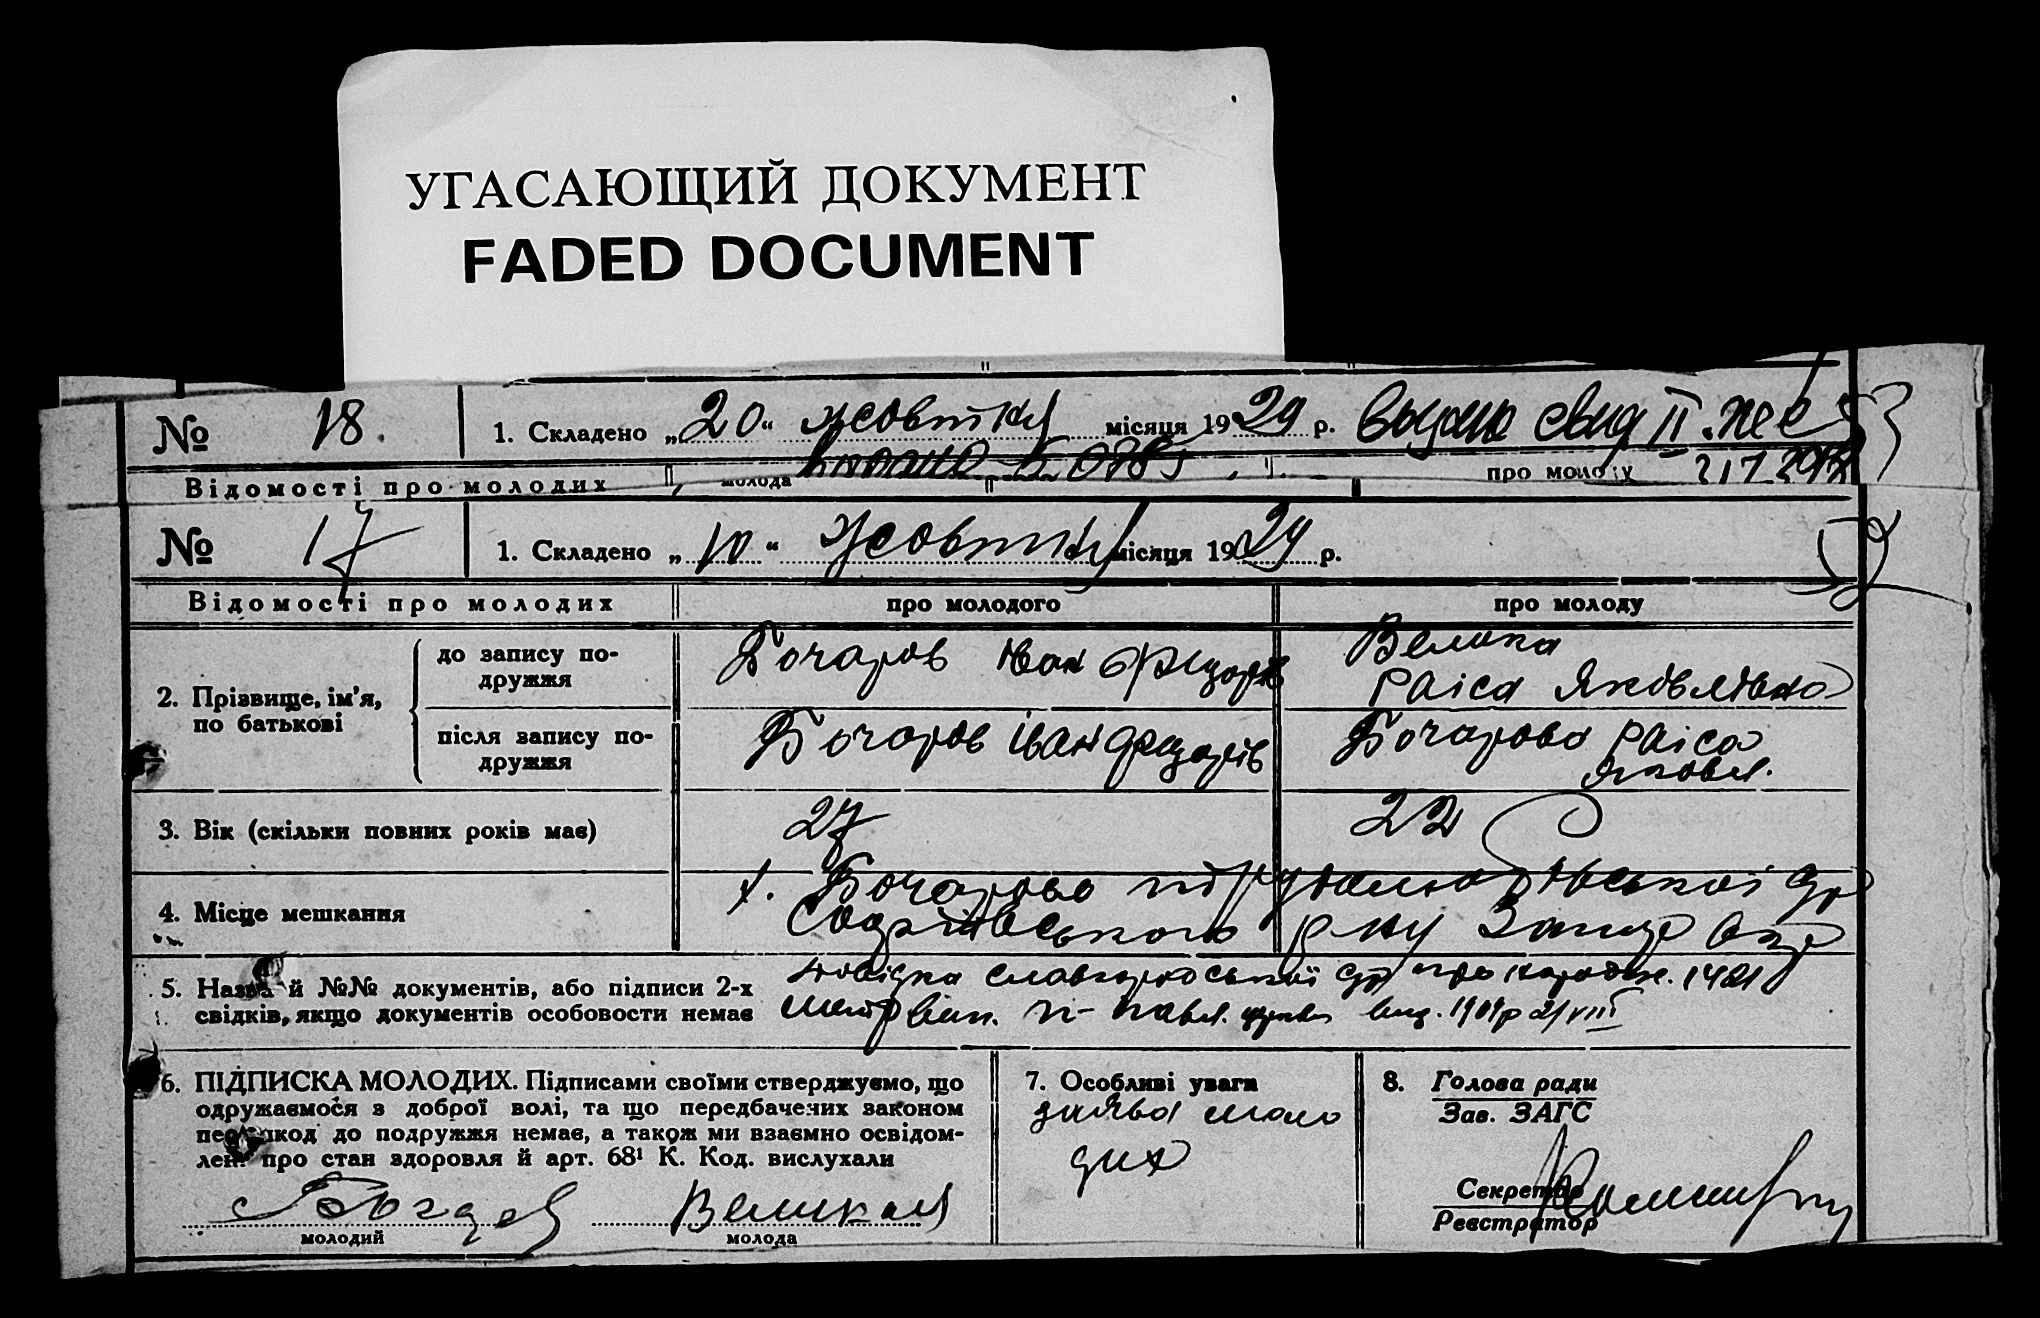 УГАСАЮЩИЙ ДОКУМЕНТ
FADED DOCUMENT
№ 18. 1. Складено „20“ жовтня місяця 1929 р. Выдано свид
Відомості про молодих молода про молоду
№ 17 1. Складено „10“ Жовтня місяця 1929 р.
Відомості про молодих про молодого про молоду
2. Прізвище, ім'я, по батькові
до запису по-
дружжя
Бочаров Іван
Велика
Раіса Яковлівна
після запису по-
дружжя
Бочаров Іван
Бочарова Раіса
Яковл.
3. Вік (скільки повних років має) 27 22
4. Місце мешкання
х. Бочарово
Софіївського р-ну Запор окр
5. Назва й №№ документів, або підписи 2-х
свідків, якщо документів особовости немає
довідка славгородської с/р про народж.
метр вип. П-Павл. церкви
6. ПІДПИСКА МОЛОДИХ. Підписами своїми стверджуємо, що
одружаємося з доброї волі, та що передбачених законом
перешкод до подружжя немає, а також ми взаємно освідом-
лені про стан здоровля й арт. 68¹ К. Код. вислухали
Великая
молодий молода
7. Особливі уваги
заява моло
дих
8. Голова ради
Зав. ЗАГС
Секретар
Реєстратор